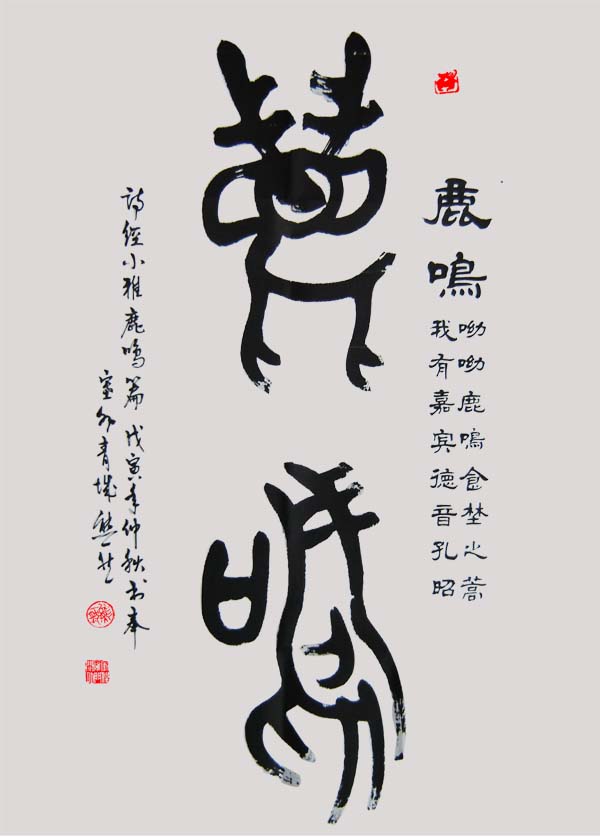 鹿鳴
呦呦鹿鳴食埜之蒿
我有嘉宾德音孔昭
鹿鳴
詩經小雅鹿鳴篇戊寅年仲秋书奉
青城